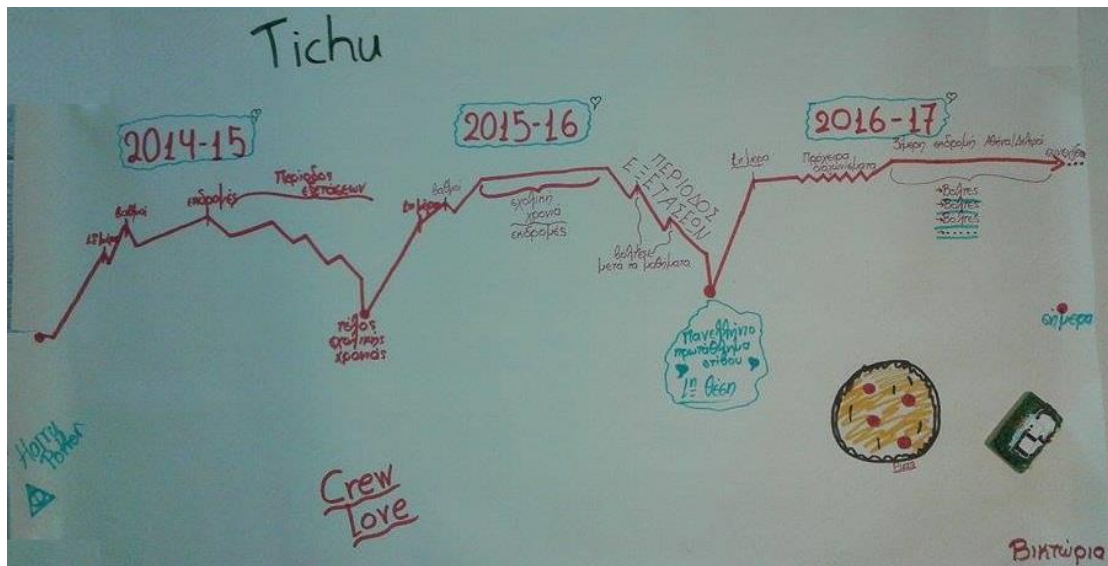 Tichu
2014-15
2015-16
2016-17
Βαθμοί
εκδρομές
Περίοδος
εξετάσεων
τέλος
σχολικής
χρονιάς
Βαθμοί
σχολική
χρονιά
εκδρομές
ΠΕΡΙΟΔΟΣ
ΕΞΕΤΑΣΕΩΝ
βόλτες
μετα τα μαθήματα
Πανελλήνιο
πρωτάθλημα
στίβου
1η θέση
Πρόχειρα
διαγωνίσματα
3ήμερη εκδρομή Αθήνα/Δελφοί
συνεχίζεται...
→Βόλτες
→Βόλτες
→Βόλτες
σήμερα
Harry
Potter
Crew
Love
Pizza
Βικτώρια